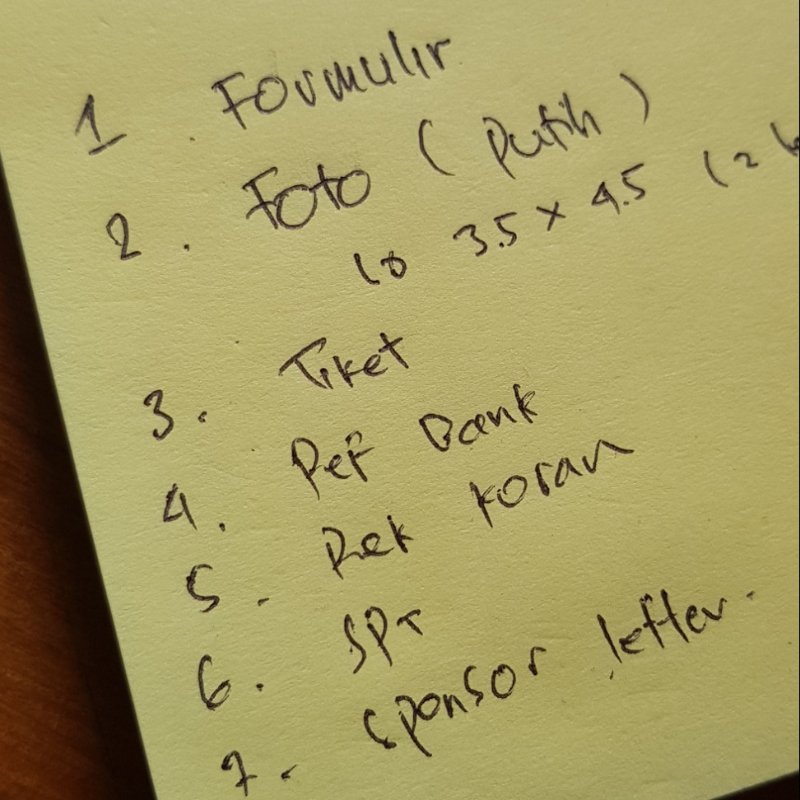 1. Formulir
2. Foto (Putih)
3.5 x 4.5 (2
3. Tiket
4. Ref Bank
5. Rek Koran
6. SPT
7. Sponsor letter.